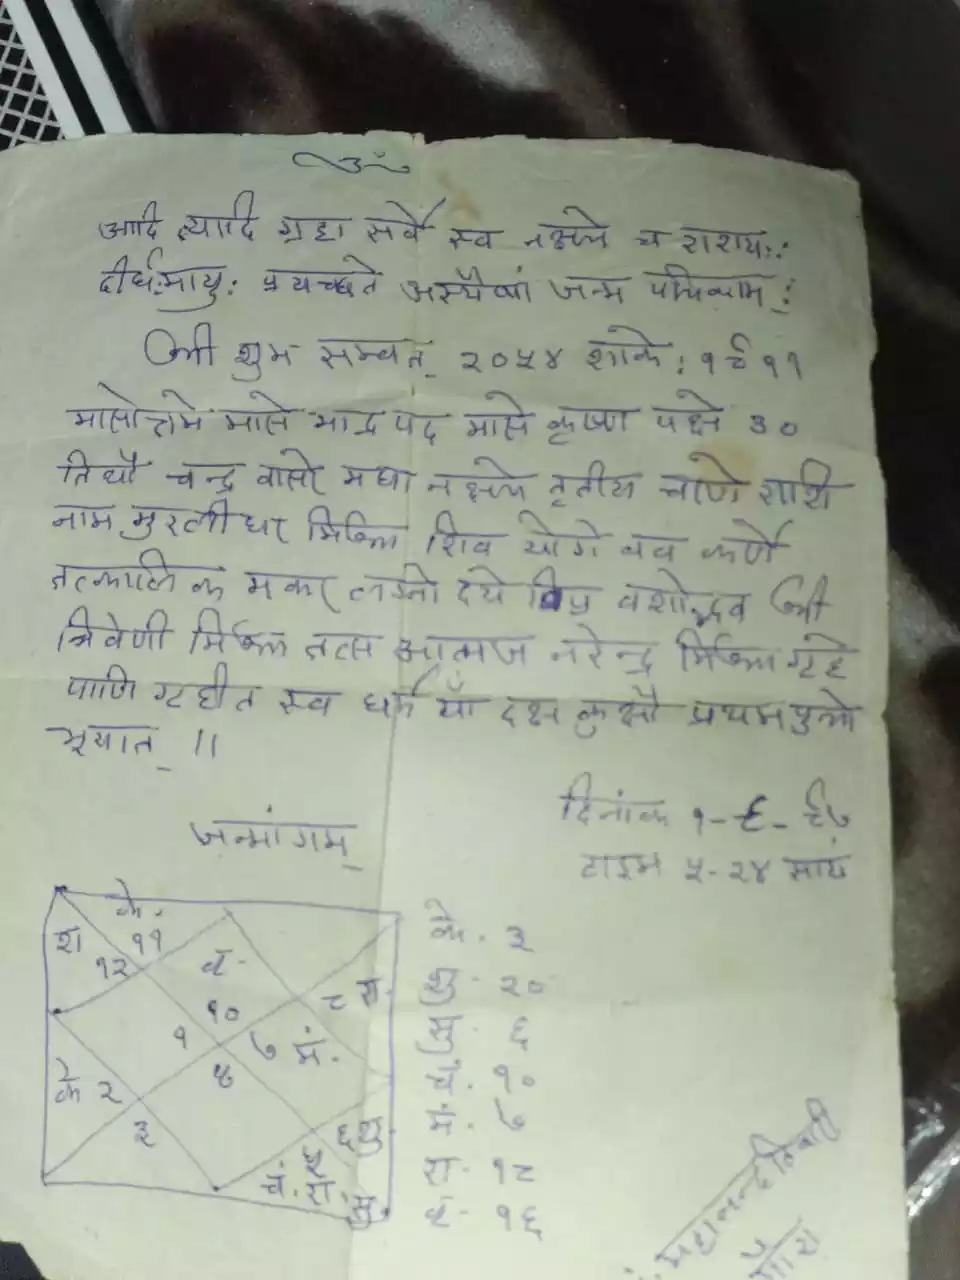 ॐ
आदि त्यादि ग्रहा सर्वे स्व नक्षत्रे च राशयः:
दीर्घःमायु: प्रयच्छते अस्यैषां जन्म पत्रिकाम्:
श्री शुभ सम्वत् २०५४ शाके: १९११
मासोत्तमे मासे भाद्र पद मासे कृष्ण पक्षे ३०
तिथौ चन्द्र वासरे मघा नक्षत्रे तृतीय चरणे राशि
नाम मुरलीधर मिश्रा शिव योगे वव कर्णे
तत्कालिक मकर लग्नो दये विप्र वंशोद्भव श्री
त्रिवेणी मिश्रा तत्स आत्मज नरेन्द्र मिश्रा गृहे
पाणि गृहीत स्व धर्म याँ दक्ष कुक्षौ प्रथम पुत्रो
भूयात् ॥
दिनांक १-९-९७
टाइम ५-२४ सायं
जन्मांगम्
के.
श ११
१२
१०
८
१ ७ मं.
४
के २
३
६ शु
चं. रा.
के. ३
शु. २०
सू. ६
चं. १०
मं. ७
रा. १८
१६